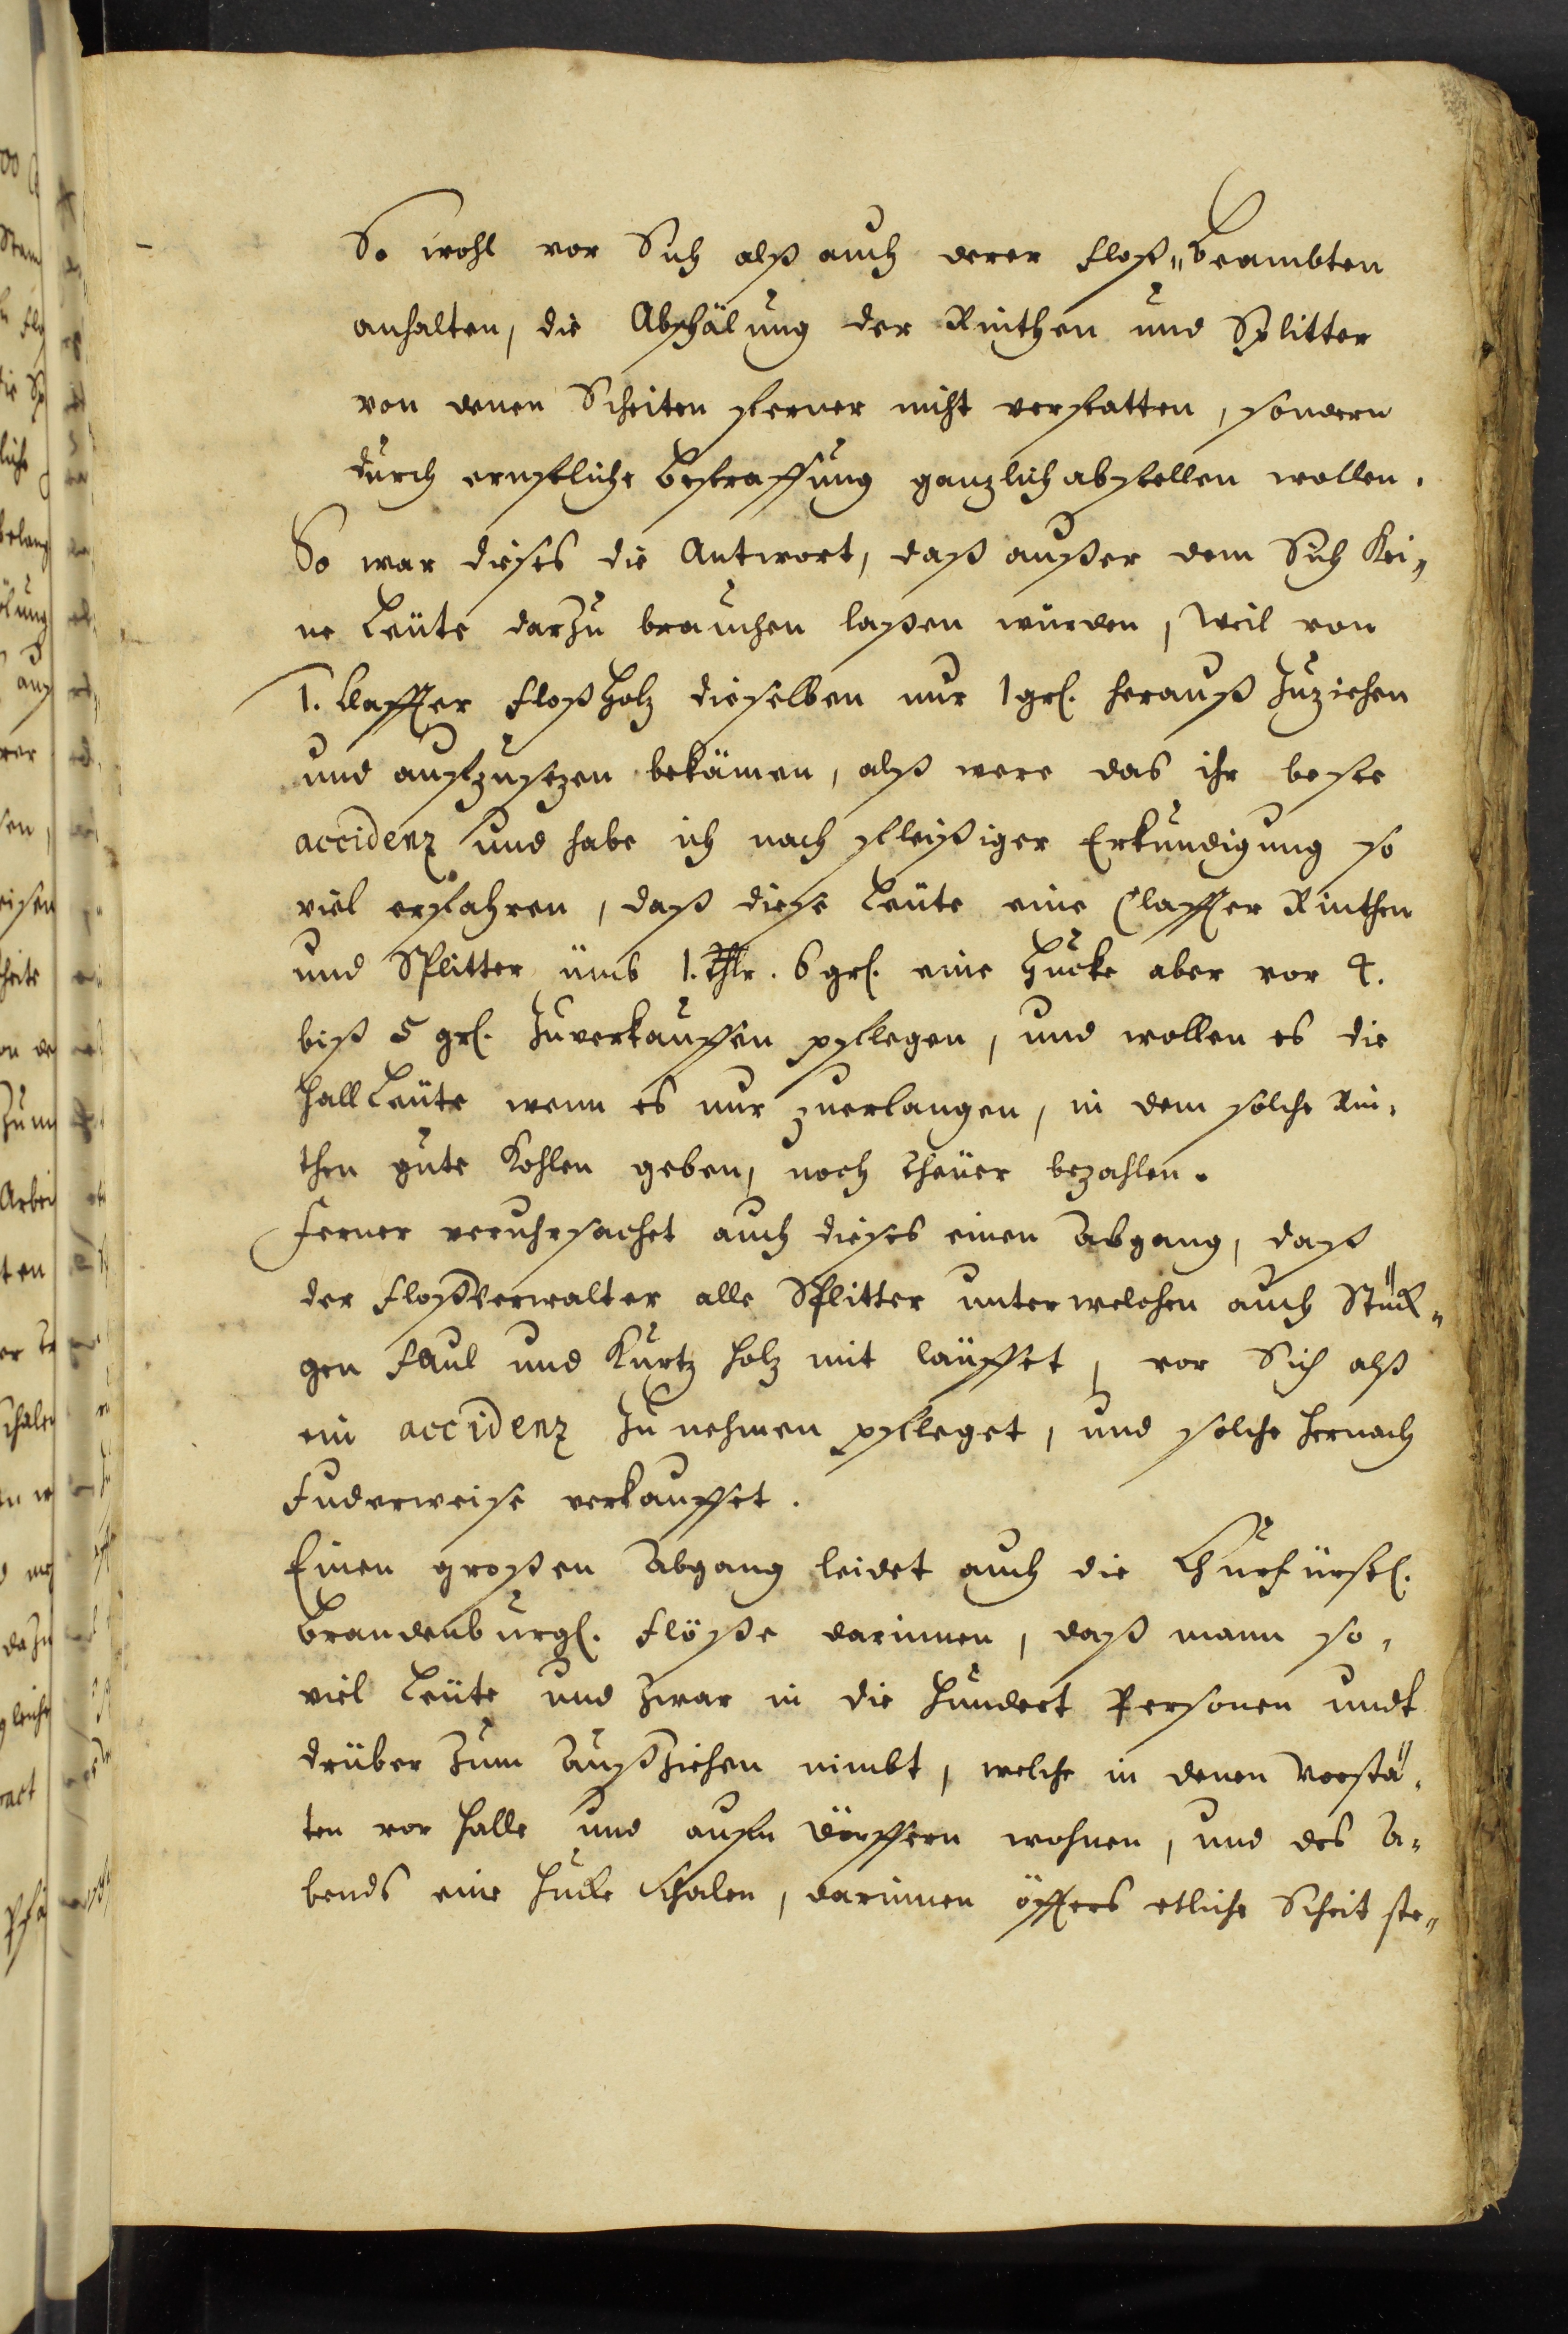 So wohl vor Sich alß auch derer Floß„Beambten
anhalten, die Abschälung der Rinthen und Splitter
von denen Scheiten ferner nicht verstatten, sondern
durch ernstliche Bestraffung ganzlich abstellen wollen.
So war dieses die Antwort, daß außer dem Sich Kei„
ne Leüte darzu brauchen laßen würden, weil von
1. Claffter Floßholz dieselben nur 1 grl. herauß zuziehen
und aufzusezen bekämen, alß were das ihr beste
accidenz und habe ich nach fleißiger Erkundigung so
viel erfahren, daß diese Leüte eine Claffter Rinthen
und Splitter ümb 1. Thlr. 6 grl. eine Hucke aber vor 4.
biß 5 grl. zuverkauffen pflegen, und wollen es die
Hall Leüte wenn es nur zuerlangen, in dem solche Rin„
then gute Kohlen geben, noch theüer bezahlen.
Ferner veruhrsachet auch dieses einen Abgang, daß
der Floßverwalter alle Splitter unter welchen auch Stück„
gen Faul und Kurtz holz mit läuffet, vor Sich alß
ein accidenz zu nehmen pfleget, und solche hernach
Fuderweise verkauffet.
Einen großen Abgang leidet auch die Churfürstl.
Brandenburgl. Flöße darinnen, daß mann so„
viel Leüte und zwar in die hundert Personen undt
drüber zum Außziehen nimbt, welche in denen Vorstä„
ten vor Halle und aufn Dörffern wohnen, und des A„
bends eine Hucke Schalen, darinnen öffters etliche Scheit ste„